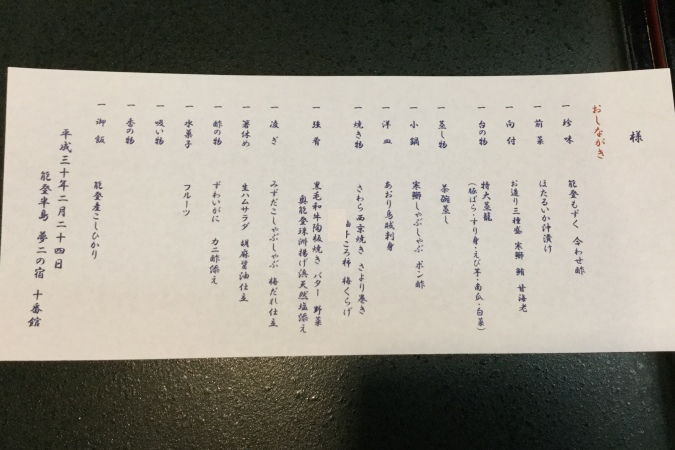 様
おしながき
一 珍味 能登もずく 合わせ酢
一 前菜 ほたるいか沖漬け
一 向付 お造り三種盛 寒鰤 鮪 甘海老
一 台の物 特大蒸籠
(豚ばら・すり身・えび芋・南瓜・白菜)
一 蒸し物 茶碗蒸し
一 小鍋 寒鰤しゃぶしゃぶ ポン酢
一 洋皿 あおり烏賊刺身
一 焼き物 さわら西京焼き さより巻き
ころ柿 梅くらげ
一 強肴 黒毛和牛陶板焼き バター 野菜
奥能登珠洲揚げ浜天然塩添え
一 凌ぎ みずだこしゃぶしゃぶ 梅だれ仕立
一 箸休め 生ハムサラダ 胡麻醤油仕立
一 酢の物 ずわいがに カニ酢添え
一 水菓子 フルーツ
一 吸い物
一 香の物
一 御飯 能登産こしひかり
平成三十年二月二十四日
能登半島 夢二の宿 十番館